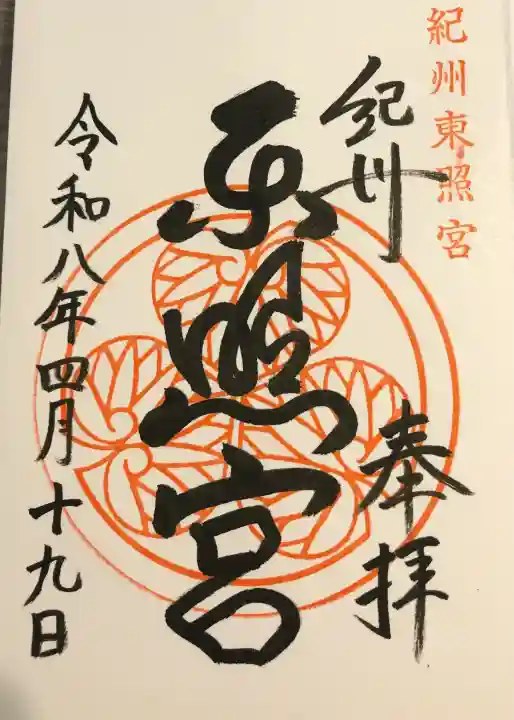 紀州東照宮
紀州
奉拝
東照宮
令和八年四月十九日